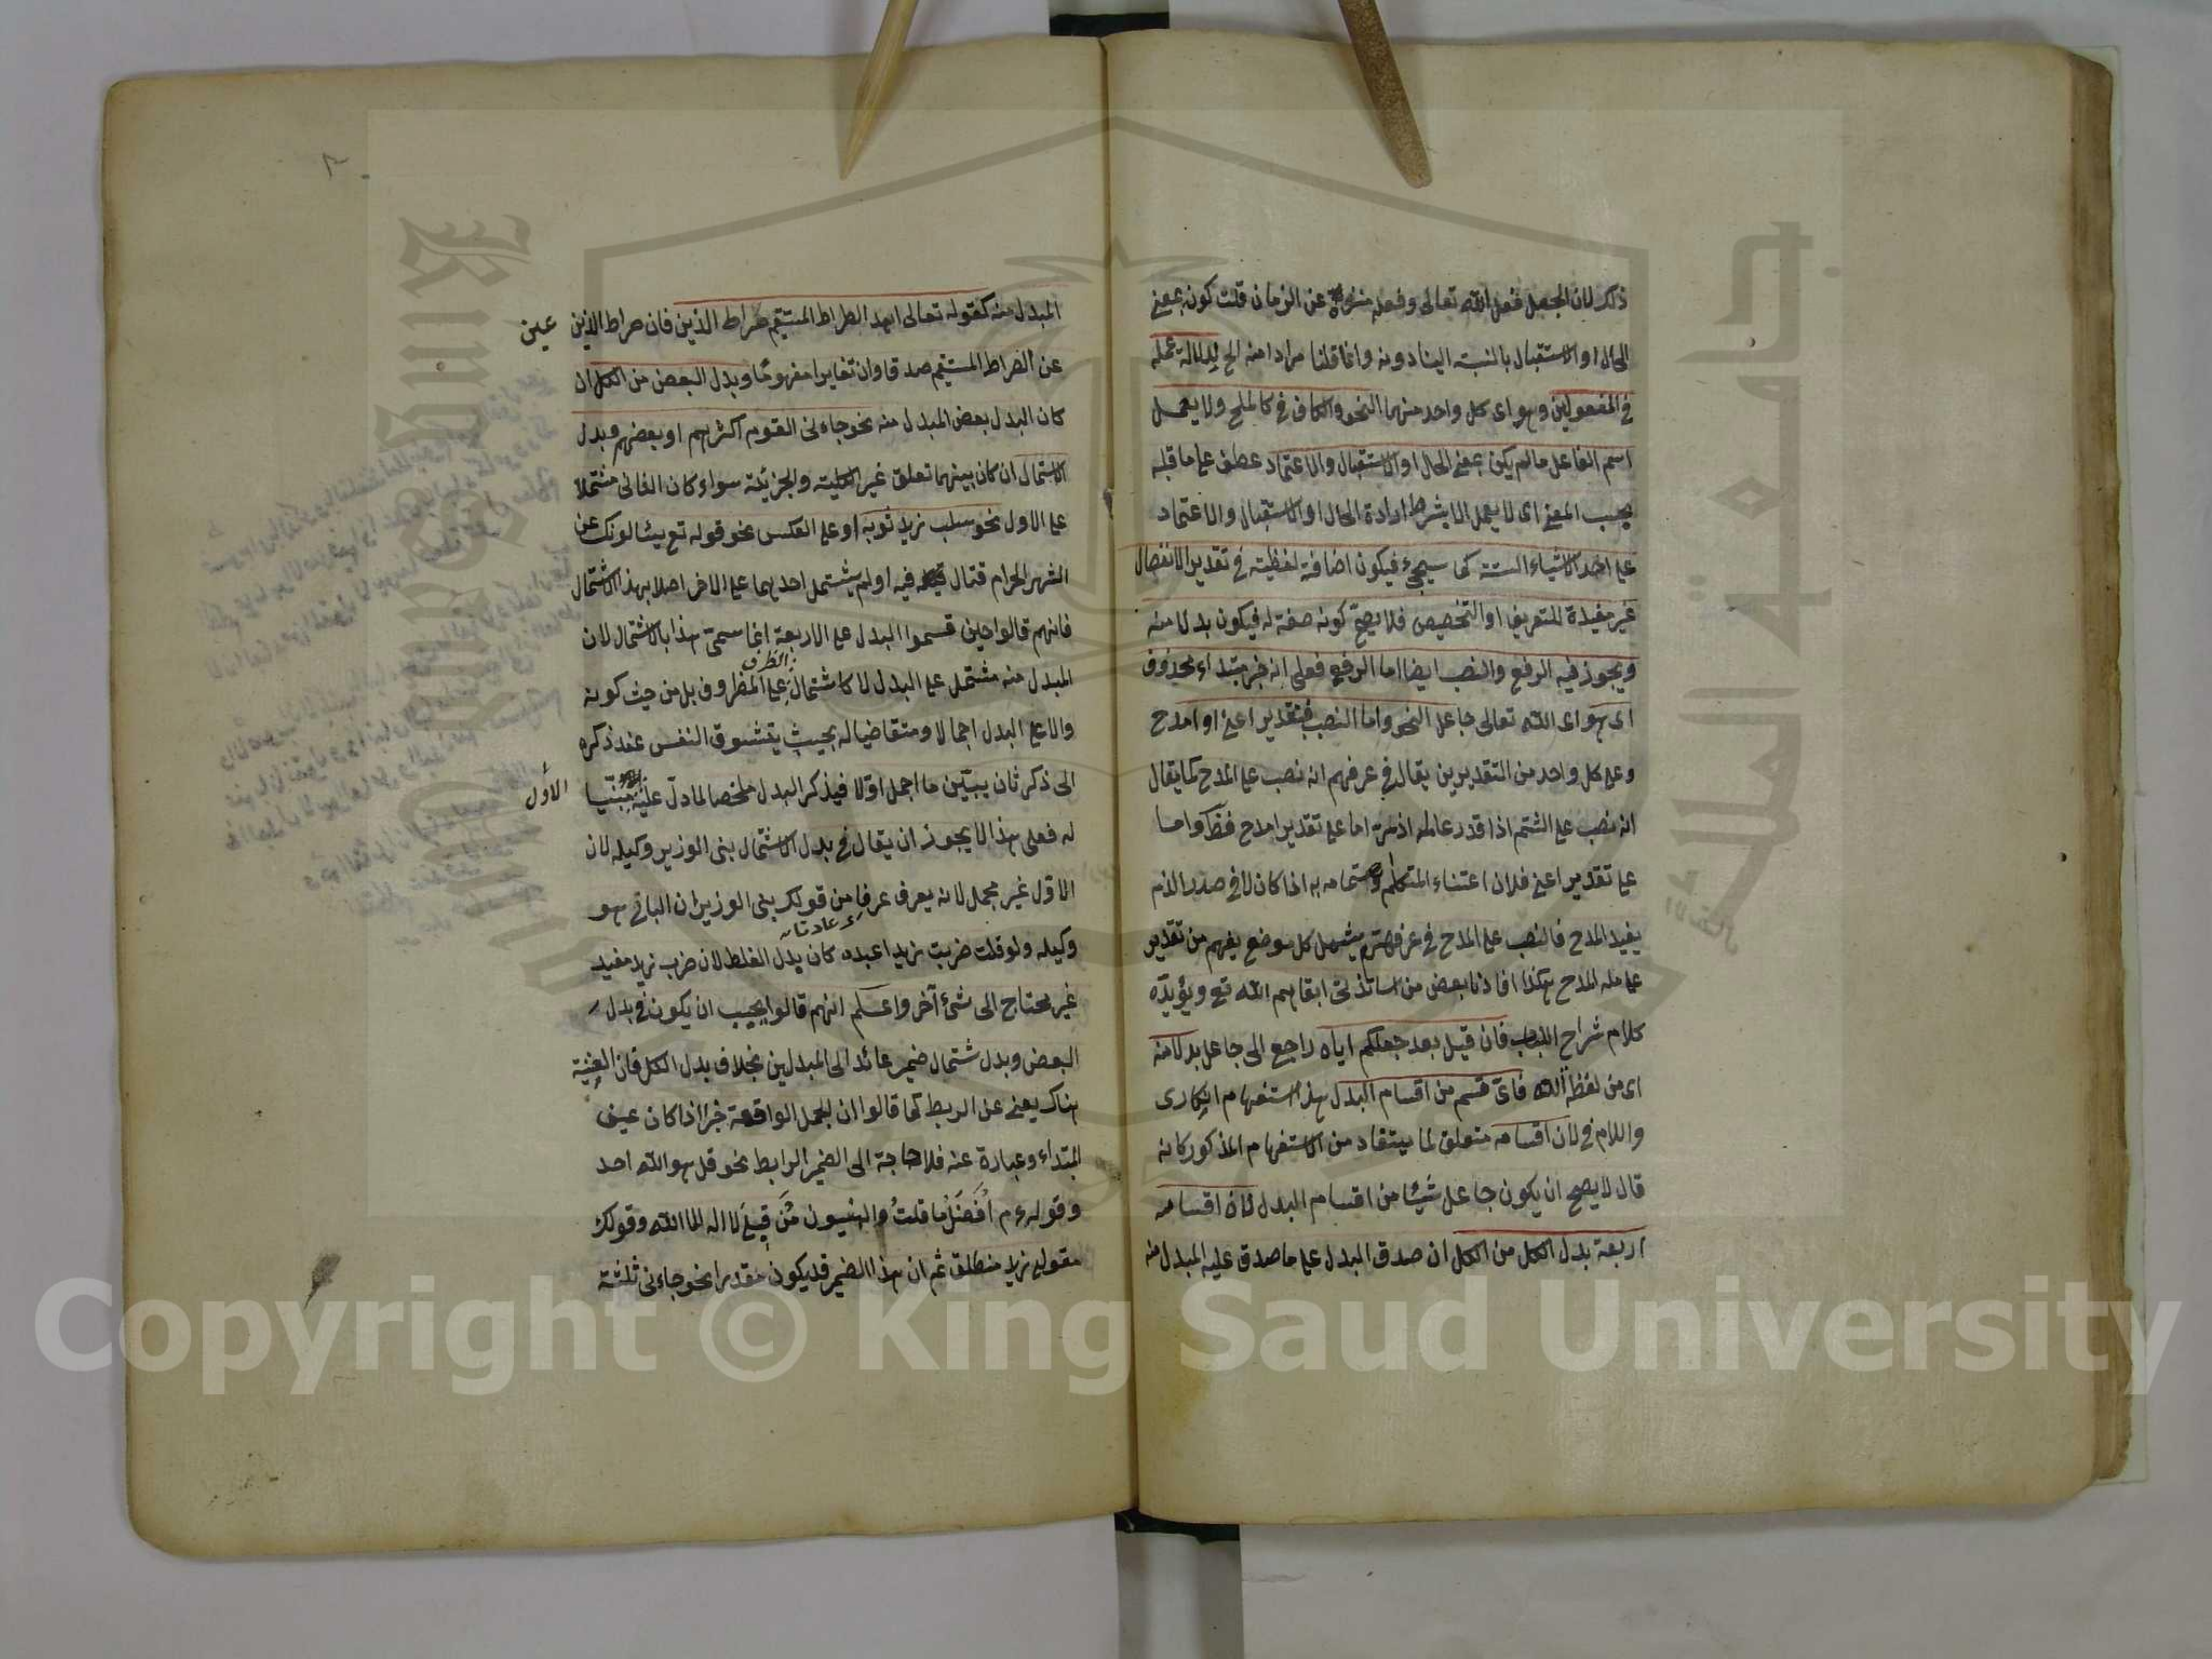 ذلك لان الجعل فعل الله تعالى وفعله منزه عن الزمان قلت كونه بمعنى
الحال او الاستقبال بالنسبة الينا دونه وانما قلنا مرادا منه الخ لدلالة عمله
في المفعولين وهو اى كل واحد منهما النحو والكاف في كالملح ولا يعمل
اسم الفاعل ما لم يكن بمعنى الحال او الاستقبال والاعتماد عطف على ما قبله
بحسب المعنى اى لا يعمل الا بشرط ارادة الحال او الاستقبال والاعتماد
على احد الاشياء الستة كما سيجئ فيكون اضافة لفظية في تقدير الانفصال
غير مفيدة للتعريف او التخصيص فلا يصح كونه صفة له فيكون بدلا منه
ويجوز فيه الرفع والنصب ايضا اما الرفع فعلى انه خبر مبتداء محذوف
اى هو اى الله تعالى جاعل النحو واما النصب فبتقدير اعنى او امدح
وعلى كل واحد من التقديرين يقال في عرفهم انه نصب على المدح كما يقال
انه نصب على الشتم اذا قدر عامله اذم اما على تقدير امدح فظ واما
على تقدير اعنى فلان اعتناء المتكلم واهتمامه به اذا كان لا في صدد الذم
يفيد المدح فالنصب على المدح في عرفهم يشمل كل موضع يفهم من تقدير
عامله المدح هكذا افادنا بعض من اساتذتى ابقاهم الله تع ويؤيده
كلام شراح اللباب فان قيل بعد جعلكم اياه راجع الى جاعل بدلا منه
اى من لفظ الله فاى قسم من اقسام البدل هذا استفهام انكارى
واللام في لان اقسامه متعلق لما يستفاد من الاستفهام المذكور كانه
قال لا يصح ان يكون جاعل شيئا من اقسام البدل لان اقسامه
اربعة بدل الكل من الكل ان صدق البدل على ما صدق عليه المبدل منه
المبدل منه كقوله تعالى اهد الصراط المستقيم صراط الذين فان صراط الذين عين
عن الصراط المستقيم صدقا وان تغايرا مفهوما وبدل البعض من الكل ان
كان البدل بعض المبدل منه نحو جاءنى القوم اكثرهم او بعضهم وبدل
الاشتمال ان كان بينهما تعلق غير الكلية والجزئية سواء كان الثانى مشتملا
على الاول نحو سلب زيد ثوبه او على العكس نحو قوله تع يسئالونك عن
الشهر الحرام قتال فيه او لم يشتمل احدهما على الاخر اصلا بهذا الاشتمال
فانهم قالوا حين قسموا البدل على الاربعة انما سمى هذا بالاشتمال لان
المبدل منه مشتمل على البدل لا كاشتمال الظرف على المظروف بل من حيث كونه
دالا على البدل اجمالا ومتقاضيا له بحيث يتشوق النفس عند ذكره
الى ذكر ثان يبين ما اجمل اولا فيذكر البدل ملخصا لما دل عليه الاول مبينا
له فعلى هذا لا يجوز ان يقال في بدل الاشتمال بنى الوزير وكيله لان
الاول غير مجمل لانه يعرف عرفا من قولك بنى الوزير ان البانى هو
وعادتا
وكيله ولو قلت ضربت زيدا عبده كان بدل الغلط لان ضرب زيد مفيد
غير محتاج الى شئ آخر واعلم انهم قالوا يجب ان يكون في بدل
البعض وبدل شتمال ضمير عائد الى المبدلين بخلاف بدل الكل فان العينية
هناك يغنى عن الربط كما قالوا ان الجمل الواقعة خبرا اذا كان عين
المبتداء وعبارة عنه فلا حاجة الى الضمير الرابط نحو قل هو الله احد
وقوله م افضل ما قلت والنبيون من قبلى لا اله الا الله وقولك
مقولى زيد منطلق ثم ان هذا الضمير قد يكون مقدرا نحو جاءنى ثلثة
Copyright © King Saud University